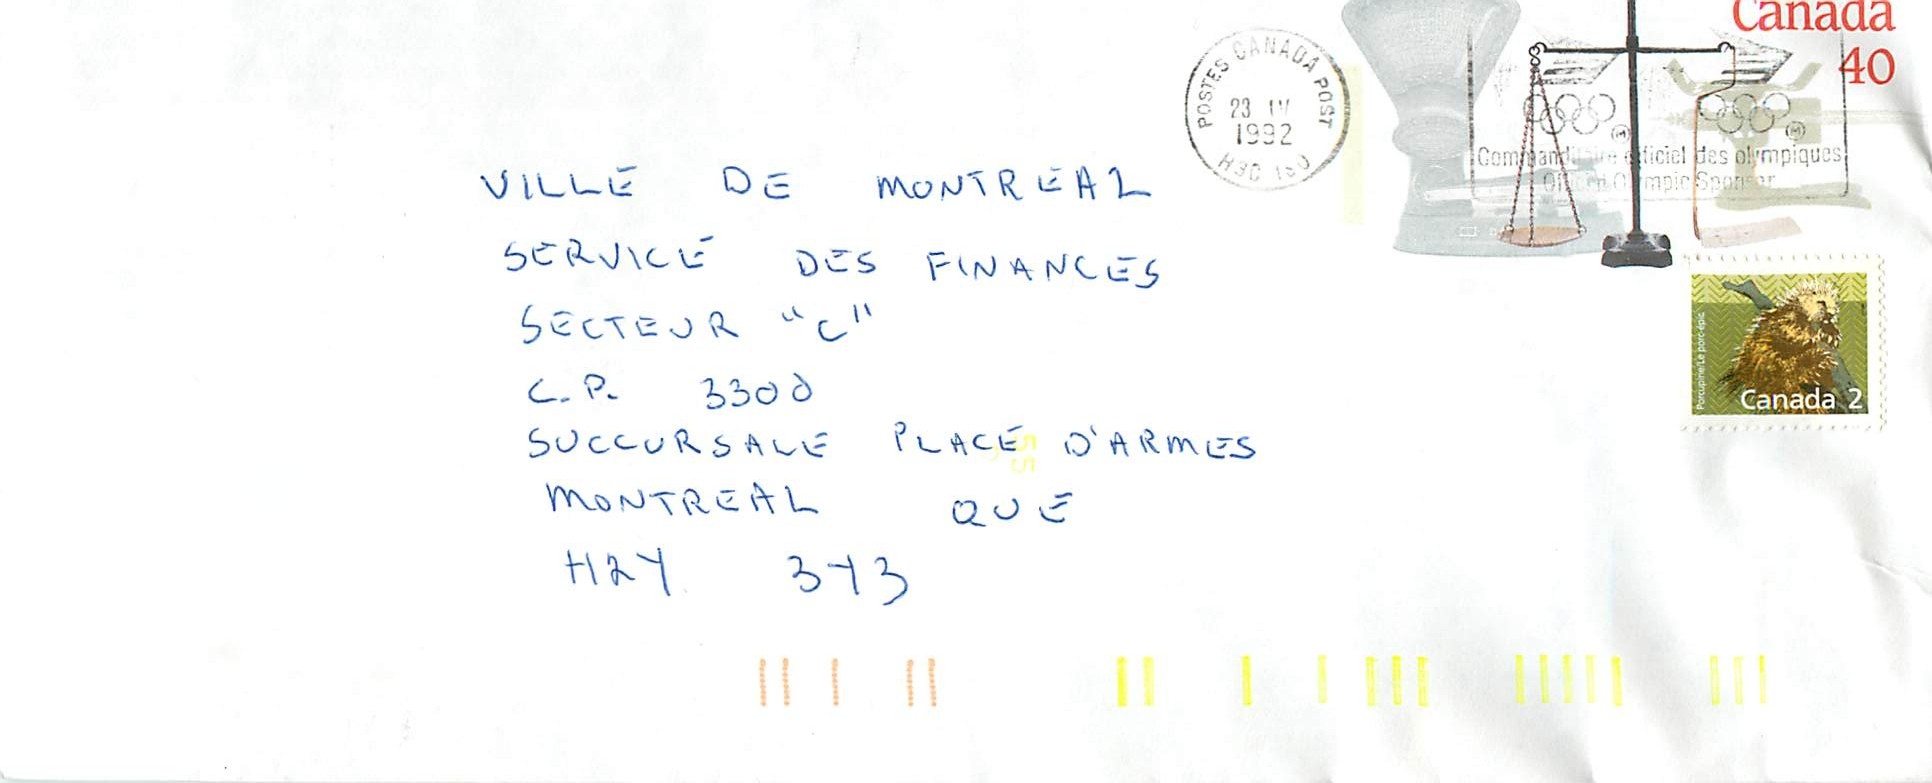 Canada
40
POSTES CANADA POST
23 IV
1992
Commanditaire officiel des olympiques
Official Olympic Sponsor
VILLE DE MONTREAL
SERVICE DES FINANCES
SECTEUR "C"
C.P. 3300
SUCCURSALE PLACE D'ARMES
MONTREAL QUE
H2Y 3Y3
Porcupine/Le porc-épic
Canada 2